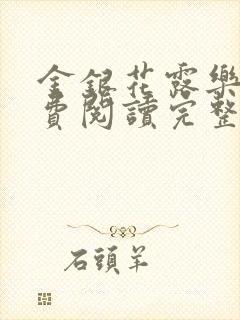 金銀花露樂
費閱讀完整
石頭羊